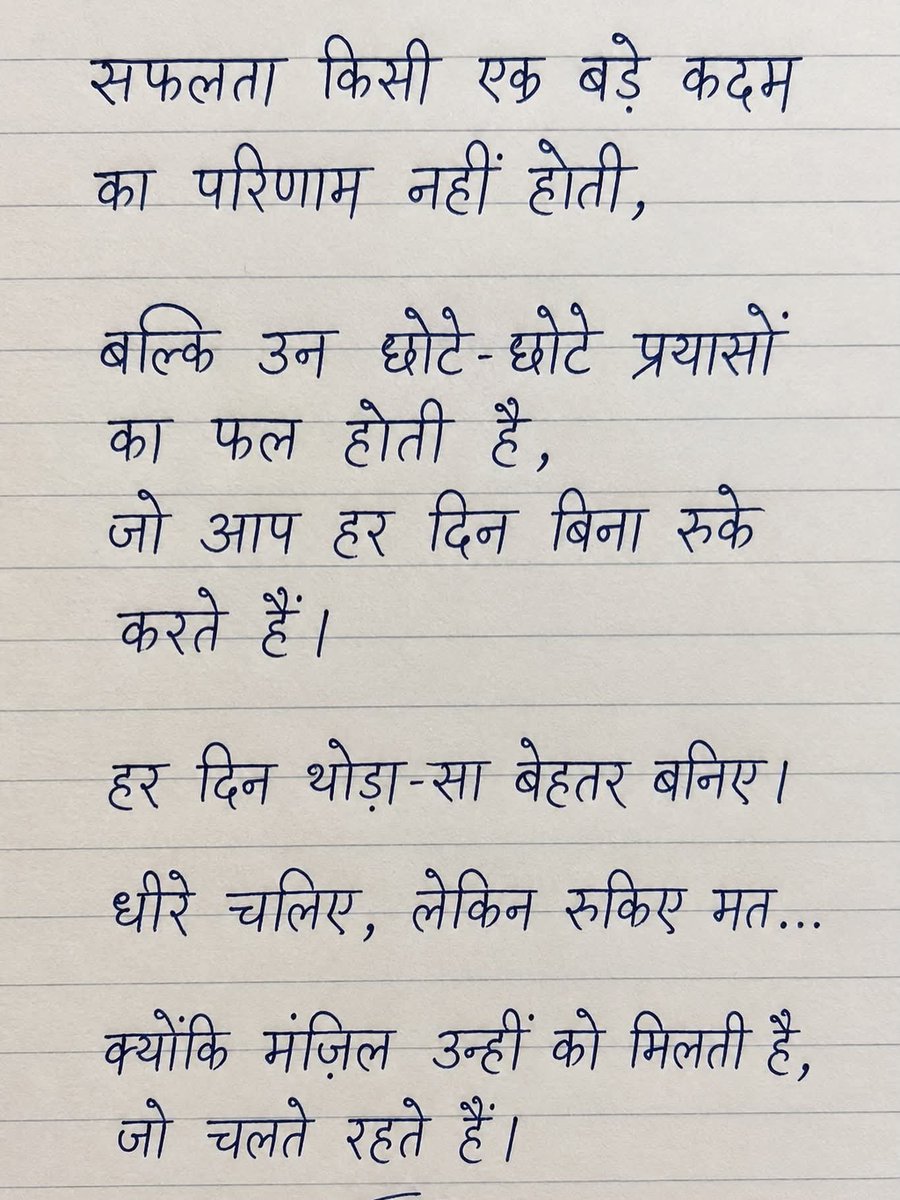 सफलता किसी एक बड़े कदम
का परिणाम नहीं होती,
बल्कि उन छोटे-छोटे प्रयासों
का फल होती है,
जो आप हर दिन बिना रुके
करते हैं।
हर दिन थोड़ा-सा बेहतर बनिए।
धीरे चलिए, लेकिन रुकिए मत...
क्योंकि मंज़िल उन्हीं को मिलती है,
जो चलते रहते हैं।